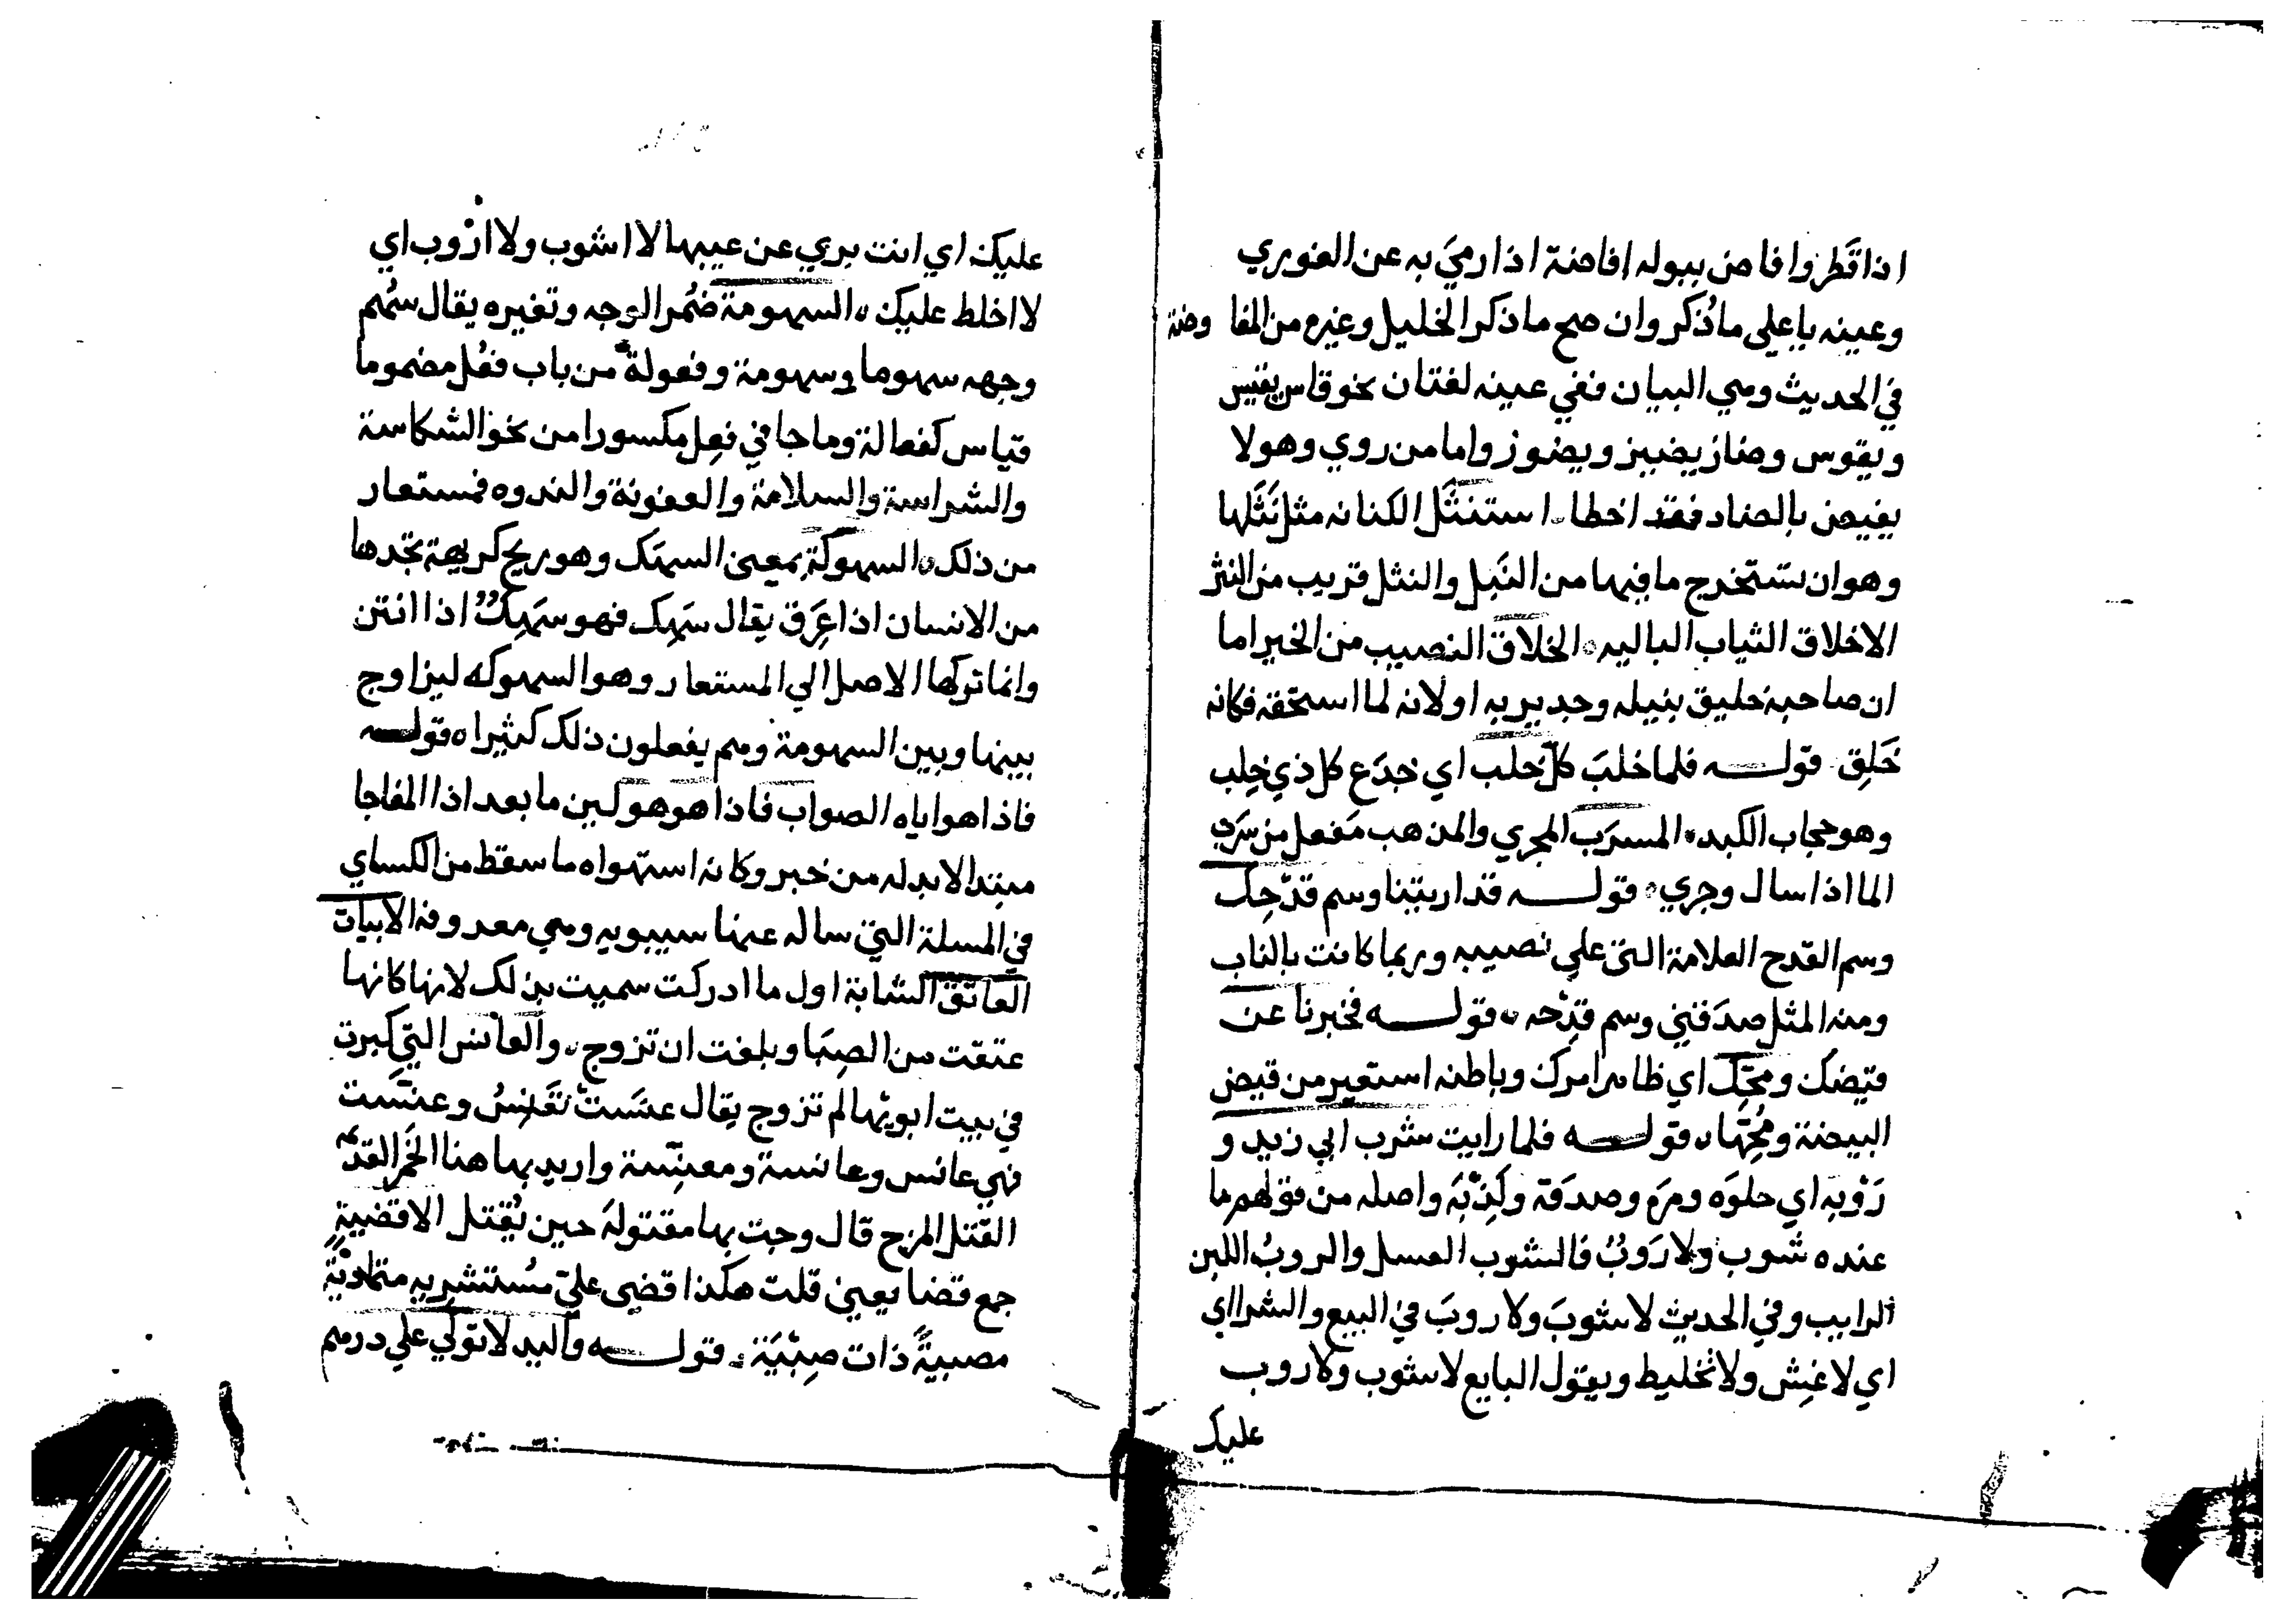 اذا قَطَر وافاض ببوله افاضة اذا رميَ به عن الغوري
وعينه يا على ما ذُكر وان صح ما ذكر الخليل وغيره من المفا وضة
في الحديث وهي البيان ففي عينه لغتان نحو قاس يقيس
ويقوس وضاز يضيز ويضوز واما من روي وهولا
يفيض بالضاد فقد اخطا استنثَل الكنانه مثل نَثَلها
وهو ان يستخرج ما فيها من النَبل والنثل قريب من النثر
الاخلاق الثياب الباليه الخلاق النصيب من الخير اما
ان صاحبه خليق بنيله وجدير به او لانه لما استحقه فكانه
خَلِق قولـــه فلما خلبَ كل خِلب اي خدَع كل ذي خِلب
وهو حجاب الكبد المسرَب المجري والمذهب مَفعل من سَرَب
الما اذا سال وجري قولـــه قد اريتنا وسم قدْحِك
وسم القدح العلامة التى علي نصيبه وربما كانت بالناب
ومنه المثل صدَقني وسم قدْحه قولـــه فخبرنا عن
قيضك ومُحِّك اي ظاهر امرك وباطنه استعير من قيض
البيضة ومُحِّها قولـــه فلما رايت شرب ابي زيد و
رَوْبه اي حلوَه ومرّه وصدقه وكِذْبَه واصله من قولهم ما
عنده شوب ولا رَوبُ فالشوب العسل والروبُ اللبن
الرايب وفي الحديث لا شوبَ ولا روبَ في البيع والشرا اي
اي لا غِش ولا تخليط ويقول البايع لا شوب ولا روب
عليك
عليك اي انت بري عن عيبها لا اشوب ولا ارُوب اي
لا اخلط عليك السهومة ضُمر الوجه وتغيره يقال سَهُم
وجهه سهوما وسهومة وفعولة من باب فعُل مضموما
قياس كفعالة وما جا في فعِل مكسورا من نحو الشكاسة
والشراسة والسلامة والعفونة والندوه فمستعار
من ذلك السهوكة بمعنى السهَك وهو ريح كريهة تجدها
من الانسان اذا عَرِق يقال سَهِك فهو سَهِكٌ اذا انتن
وانما تركها الاصل الي المستعار وهو السهوكه ليزاوج
بينها وبين السهومة وهم يفعلون ذلك كثيرا قولـــه
فاذا هو اياه الصواب فاذا هو هو لين ما بعد اذا المفاجا
مبتدا لابد له من خبر وكانه استهواه ما سقط من الكساي
في المسلة التي ساله عنها سيبويه وهي معروفه الابيات
العاتق الشابة اول ما ادركت سميت بذلك لانها كانها
عتقت من الصِبَا وبلغت ان تزوج والعانس التي كبرت
في بيت ابويْها لم تزوج يقال عنَسَتْ تعْنِسُ وعنّسَت
فهي عانس وعانسة ومعنِّسة واريد بها هنا الخَمر القديمه
القتل المزج قال وحبت بها مقتولةَ حين تُقتل الاقضية
جمع قضا يعني قلت هكذا قضى عليّ مسُتشرِيه متماديَة
مصبيةً ذات صِبْيَة قولـــه واليد لا تولي علي درهم